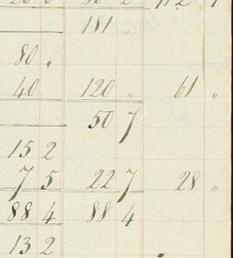 181 "
80 .
40 120 " 61 "
50 7
15 2
7 5 22 7 28 "
88 4 88 4
13 2